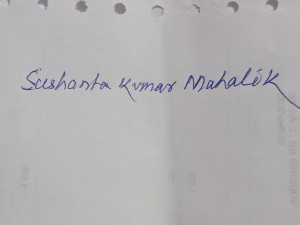 Sushanta Kumar Mahalik